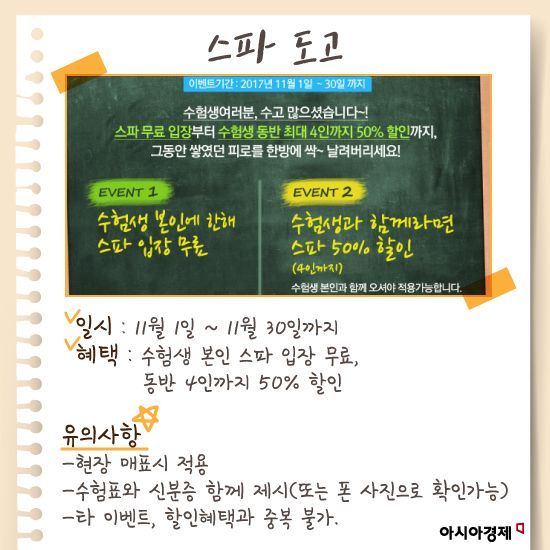 스파 도고
이벤트기간 : 2017년 11월 1일 ~ 30일 까지
수험생여러분, 수고 많으셨습니다~!
스파 무료 입장부터 수험생 동반 최대 4인까지 50% 할인까지,
그동안 쌓였던 피로를 한방에 싹~ 날려버리세요!
EVENT 1
수험생 본인에 한해
스파 입장 무료
EVENT 2
수험생과 함께라면
스파 50% 할인
(4인까지)
수험생 본인과 함께 오셔야 적용가능합니다.
일시 : 11월 1일 ~ 11월 30일까지
혜택 : 수험생 본인 스파 입장 무료,
동반 4인까지 50% 할인
유의사항
-현장 매표시 적용
-수험표와 신분증 함께 제시(또는 폰 사진으로 확인가능)
-타 이벤트, 할인혜택과 중복 불가.
아시아경제